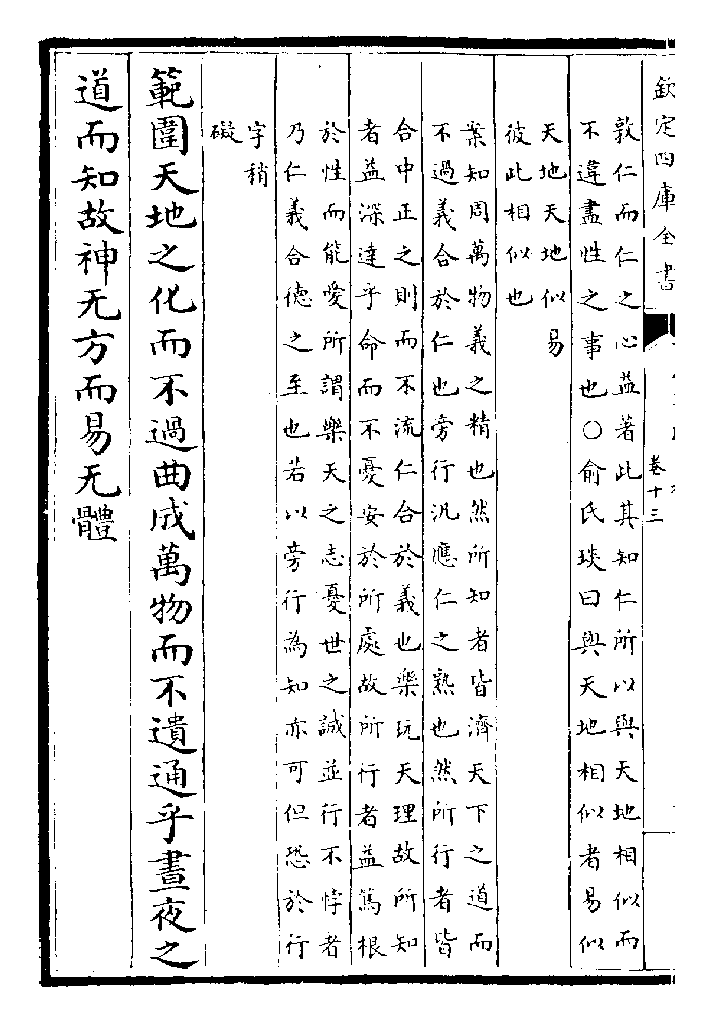 欽定四庫全書
卷十三
敦仁而仁之心益著此其知仁所以與天地相似而
不違盡性之事也○俞氏琰曰與天地相似者易似
天地天地似易
彼此相似也
案知周萬物義之精也然所知者皆濟天下之道而
不過義合於仁也旁行汎應仁之熟也然所行者皆
合中正之則而不流仁合於義也樂玩天理故所知
者益深達乎命而不憂安於所處故所行者益篤根
於性而能愛所謂樂天之志憂世之誠並行不悖者
乃仁義合德之至也若以旁行為知亦可但恐於行
字稍
礙
範圍天地之化而不過曲成萬物而不遺通乎晝夜之
道而知故神无方而易无體